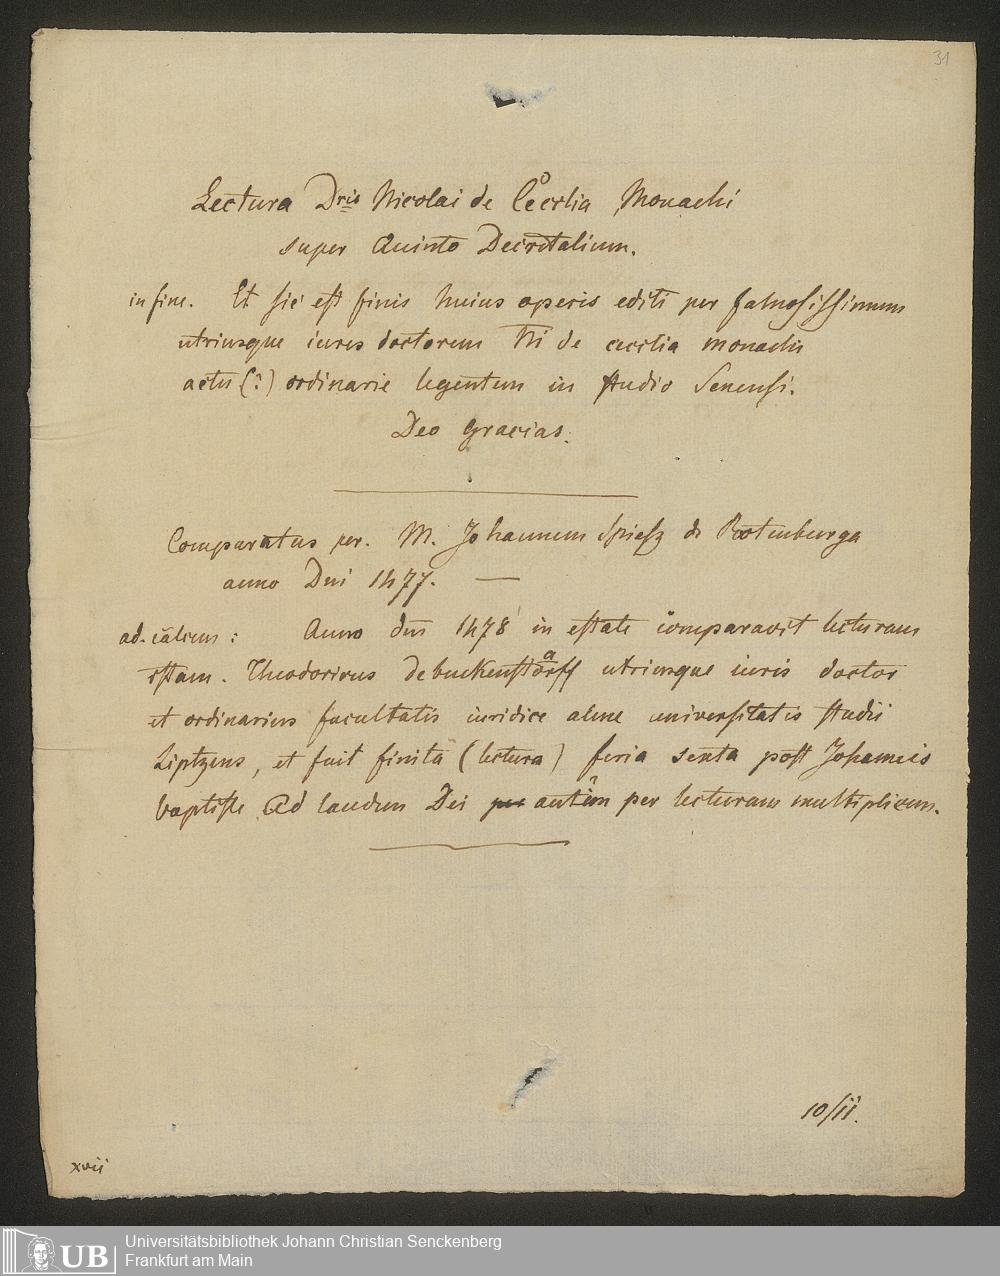 31
Lectura Dris Nicolai de Cecilia Monachi
super Quinto Decretalium.
in fine. Et sic est finis huius operis editi per famosissimum
utriusque iuris doctorem Ni de cecilia monachi
actu (?) ordinarie legentem in studio Senensi.
Deo gracias.
Comparatus per. M. Johannem Spiesz de Rotenburga
anno Dni 1477. —
ad. calcem: Anno dni 1478 in estate comparavit lecturam
istam. Theodoricus de buckenstorff utriusque iuris doctor
et ordinarius facultatis iuridice alme universitatis studii
Liptzens, et fuit finita (lectura) feria sexta post Johannis
baptiste Ad laudem Dei per lecturam multiplicem.
10/ii.
xvii
UB Universitätsbibliothek Johann Christian Senckenberg
Frankfurt am Main